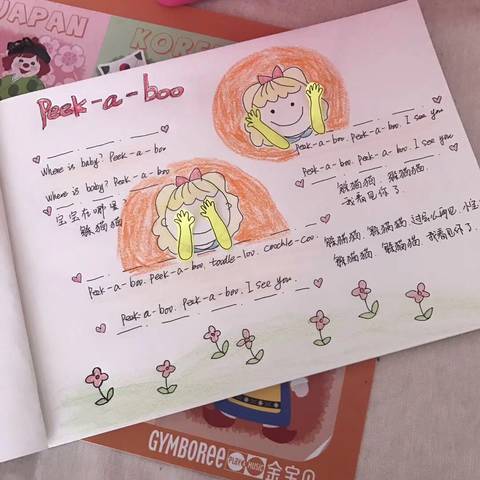 JAPAN
KOREA
Peek-a-boo
Where is baby? Peek-a-boo
Where is baby? Peek-a-boo
宝宝在哪里
躲猫猫
Peek-a-boo. Peek-a-boo. I see you
Peek-a-boo. Peek-a-boo. I see you
躲猫猫, 躲猫猫,
我看见你了
Peek-a-boo. Peek-a-boo. toodle-loo. coochie-coo.
Peek-a-boo. Peek-a-boo. I see you.
躲猫猫, 躲猫猫
躲猫猫, 躲猫猫, 我看见你了.
GYMBOREE PLAY MUSIC 金宝贝